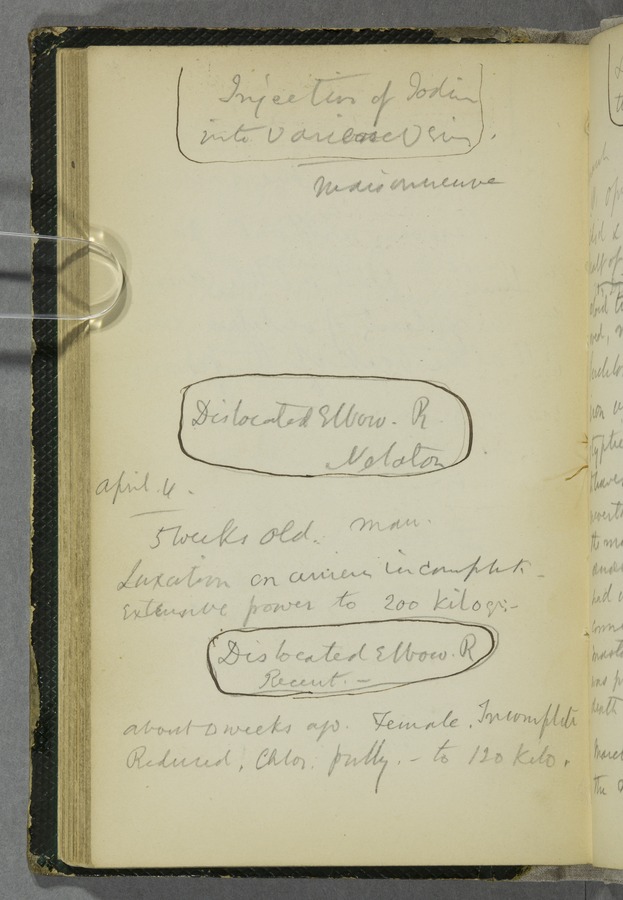 Injection of Iodin
into Varicose Vein.
Maisonneuve
Dislocated Elbow. R
Nelaton
April. 4.
5 weeks old. man.
Luxation en arriere incomplete -
Extensive power to 200 Kilogs:-
Dislocated Elbow. R
Recent. -
about weeks ago. Female. Incomplete
Reduced, Chlor. pully. - to 120 Kilo.